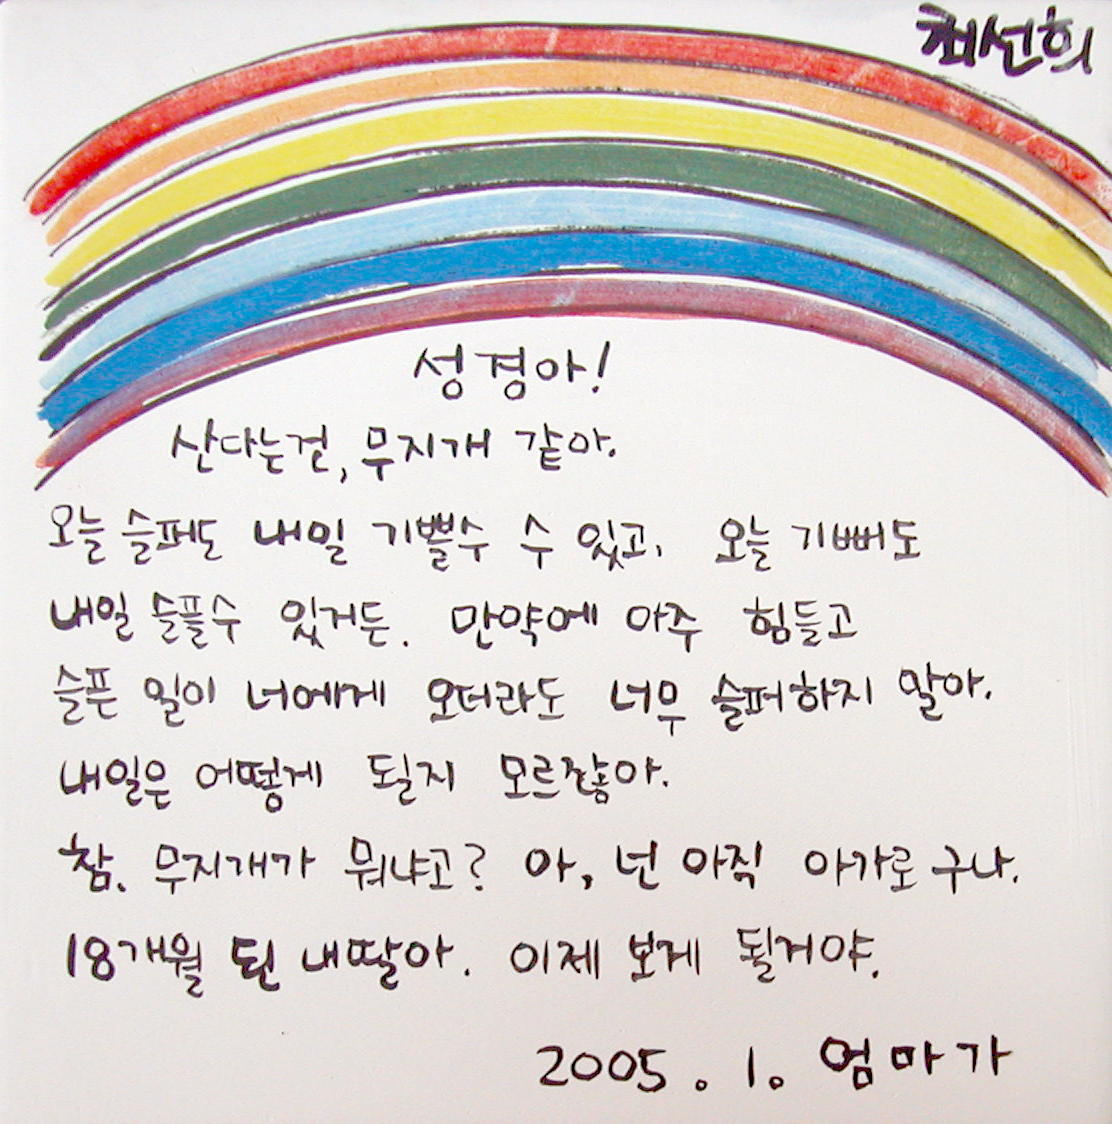 최선희
성경아!
산다는건, 무지개 같아.
오늘 슬퍼도 내일 기쁠수 수 있고, 오늘 기뻐도
내일 슬플수 있거든. 만약에 아주 힘들고
슬픈 일이 너에게 오더라도 너무 슬퍼하지 말아.
내일은 어떻게 될지 모르잖아.
참. 무지개가 뭐냐고? 아, 넌 아직 아가로구나.
18개월 된 내딸아. 이제 보게 될거야.
2005. 1. 엄마가